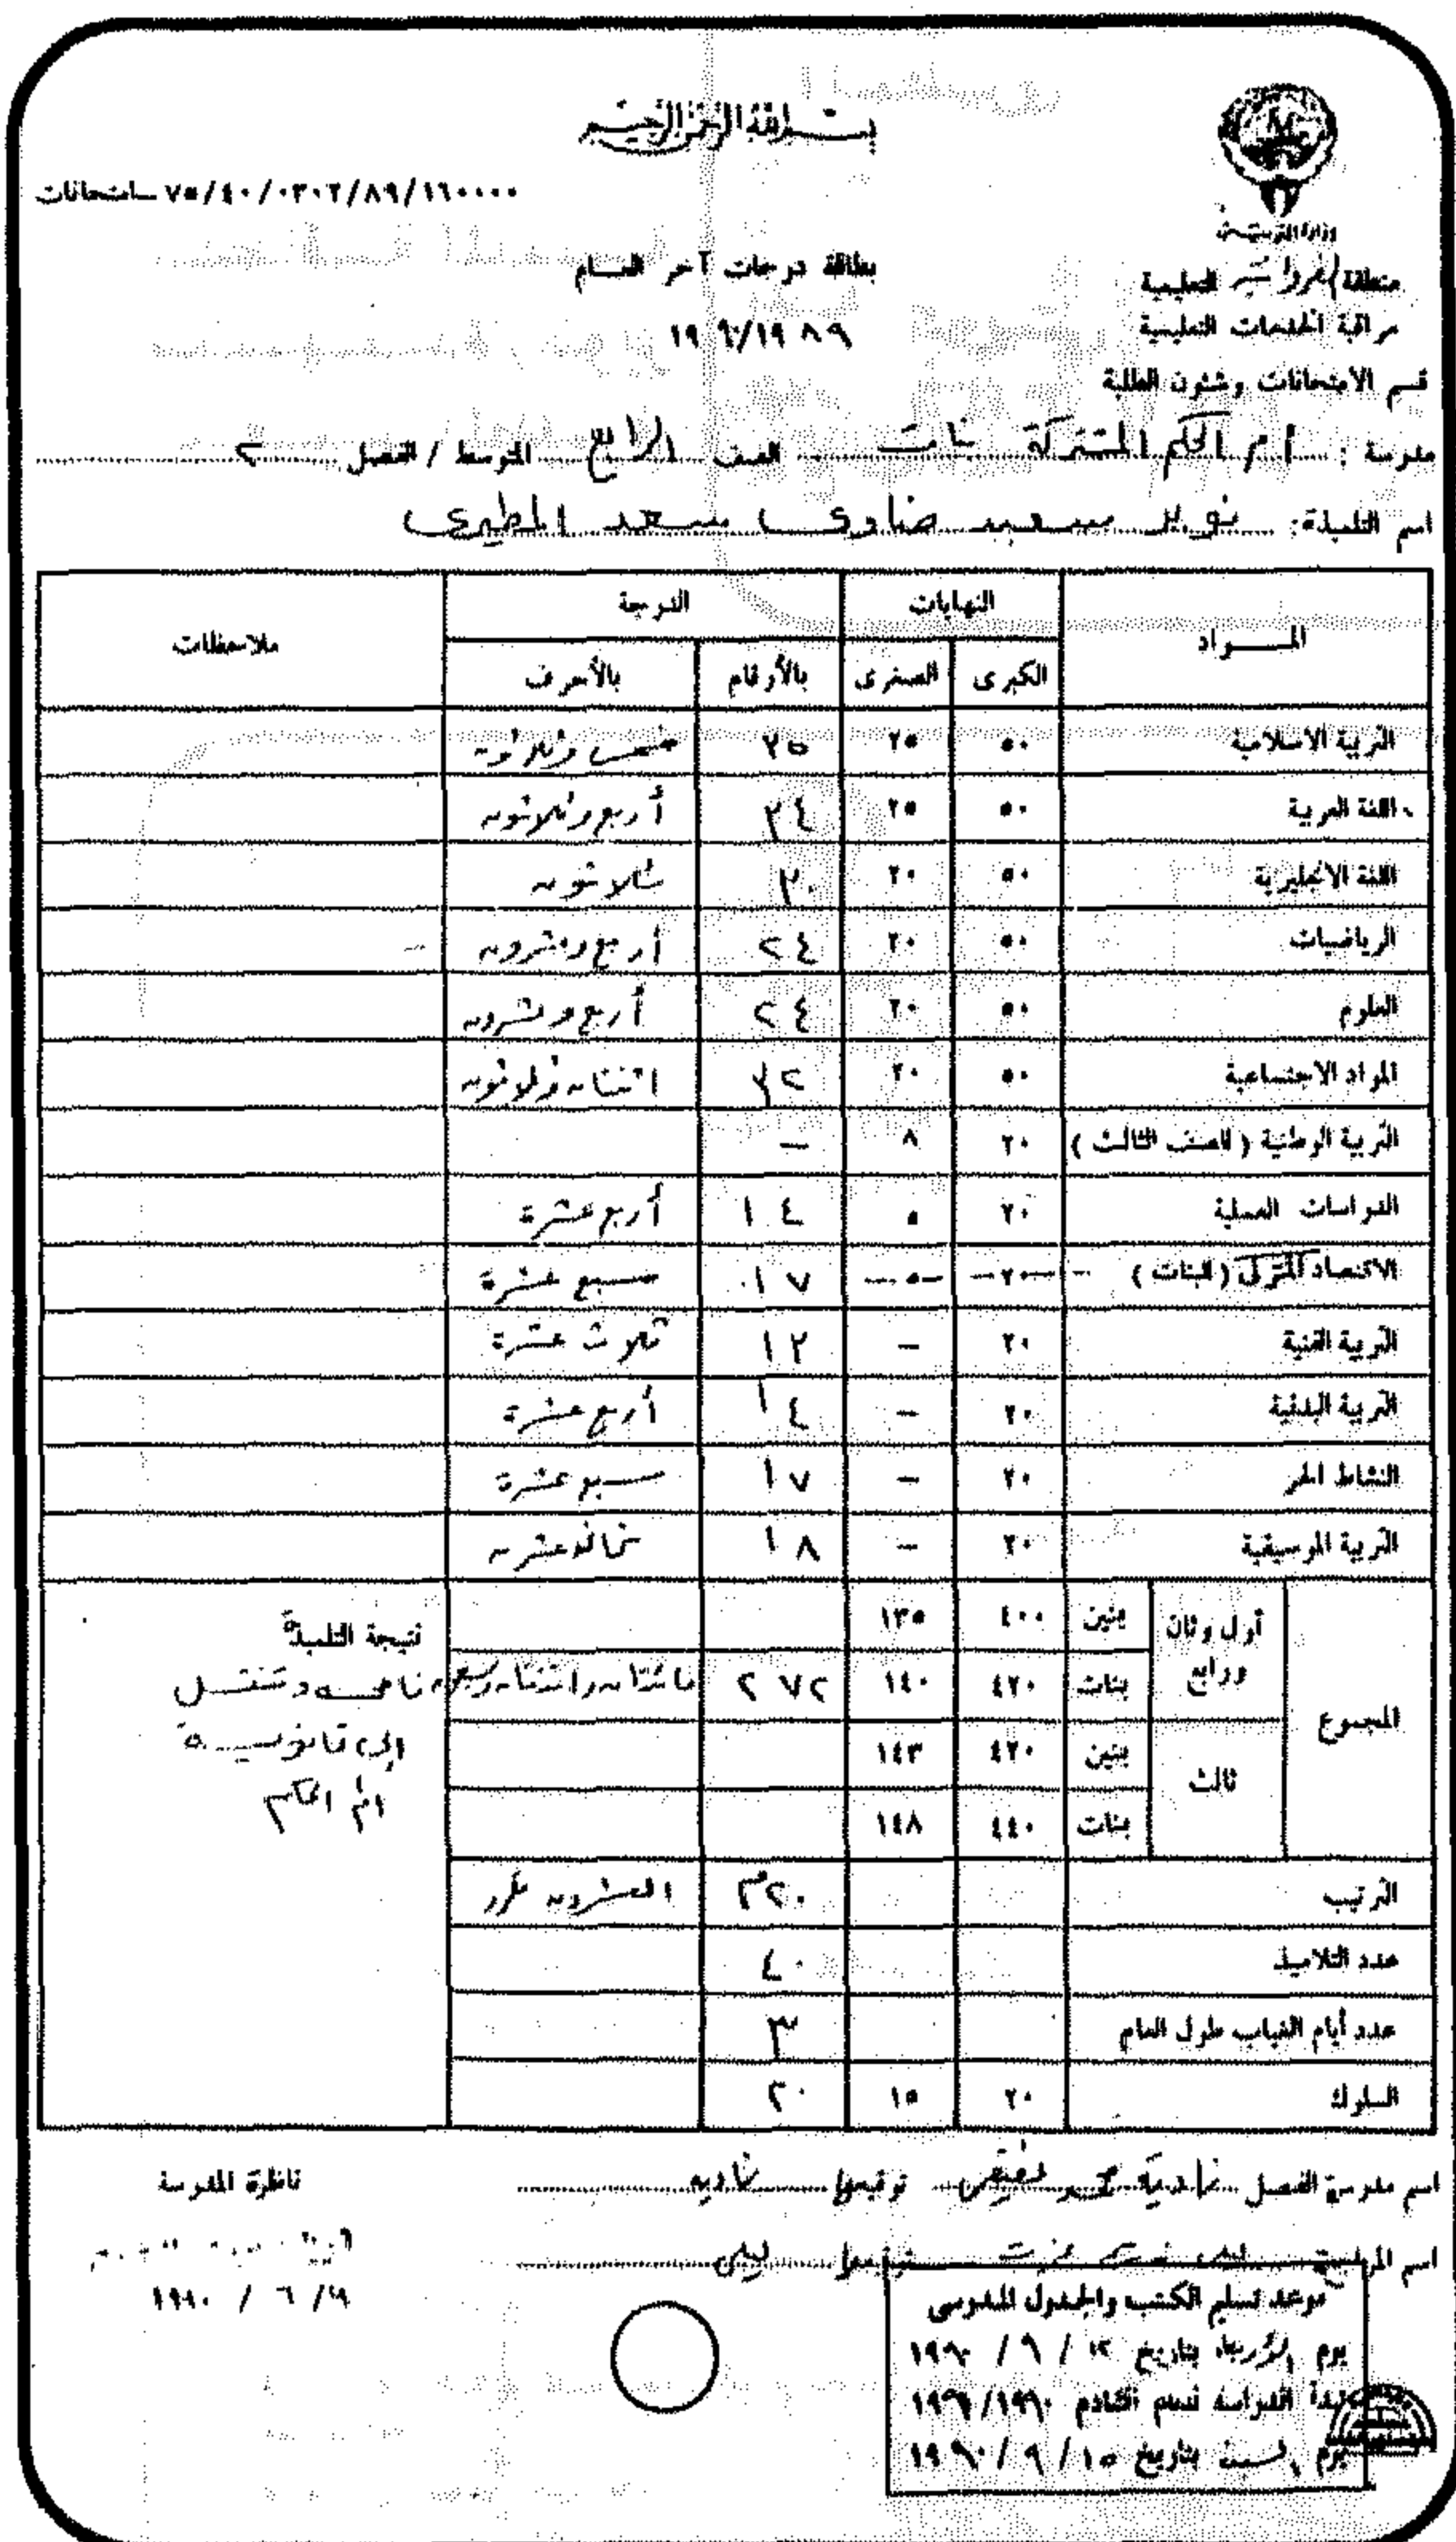 بسم الله الرحمن الرحيم
٧٥/٤٠/٠٣٠٢/٨٩/١٦٠٠٠٠ ـ امتحانات
وزارة التربية
منطقة التعليمية
مراقبة الخدمات التعليمية
قسم الامتحانات وشئون الطلبة
بطاقة درجات آخر العام
١٩٨٩/١٩٩٠
مدرسة : أم الحكم المشتركة بنات الصف الرابع المتوسط / الفصل ٢
اسم التلميذة: نوير سعيد ضاوي سعد المطيري
المـــواد النهايات الدرجة ملاحظات
الكبرى الصغرى بالأرقام بالأحرف
التربية الاسلامية ٥٠ ٢٥ ٣٥ خمس وثلاثون
اللغة العربية ٥٠ ٢٥ ٣٤ أربع وثلاثون
اللغة الانجليزية ٥٠ ٢٠ ٣٠ ثلاثون
الرياضيات ٥٠ ٢٠ ٢٤ أربع وعشرون
العلوم ٥٠ ٢٠ ٢٤ أربع وعشرون
المواد الاجتماعية ٥٠ ٢٠ ٣٢ اثنتان وثلاثون
التربية الوطنية ( للصف الثالث ) ٢٠ ٨ —
الدراسات العملية ٢٠ ٥ ١٤ أربع عشرة
الاقتصاد المنزلي ( للبنات ) ٢٠ ٥ ١٧ سبع عشرة
التربية الفنية ٢٠ – ١٣ ثلاث عشرة
التربية البدنية ٢٠ – ١٤ أربع عشرة
النشاط الحر ٢٠ – ١٧ سبع عشرة
التربية الموسيقية ٢٠ – ١٨ ثماني عشرة
المجموع
أول وثان ورابع بنين ٤٠٠ ١٣٥
بنات ٤٢٠ ١٤٠ ٢٧٢ مائتان واثنتان وسبعون
ثالث بنين ٤٢٠ ١٤٣
بنات ٤٤٠ ١٤٨
نتيجة التلميذة
ناجحة وتنتقل
إلى ثانوية
أم الحكم
الترتيب ٢٠م العشرون مكرر
عدد التلاميذ ٤٠
عدد أيام الغياب طول العام ٣
السلوك ٢٠ ١٥ ٢٠
اسم مدرسة الفصل نادية محمد توقيعها نادية
ناظرة المدرسة
اسم توقيعها ليلى
١٩٩٠ / ٦ /
موعد تسليم الكتب والجدول المدرسى
يوم الأربعاء بتاريخ ١٢ / ٩ / ١٩٩٠
تبدأ الدراسة للعام القادم ١٩٩٠/١٩٩١
يوم السبت بتاريخ ١٥ / ٩ / ١٩٩٠